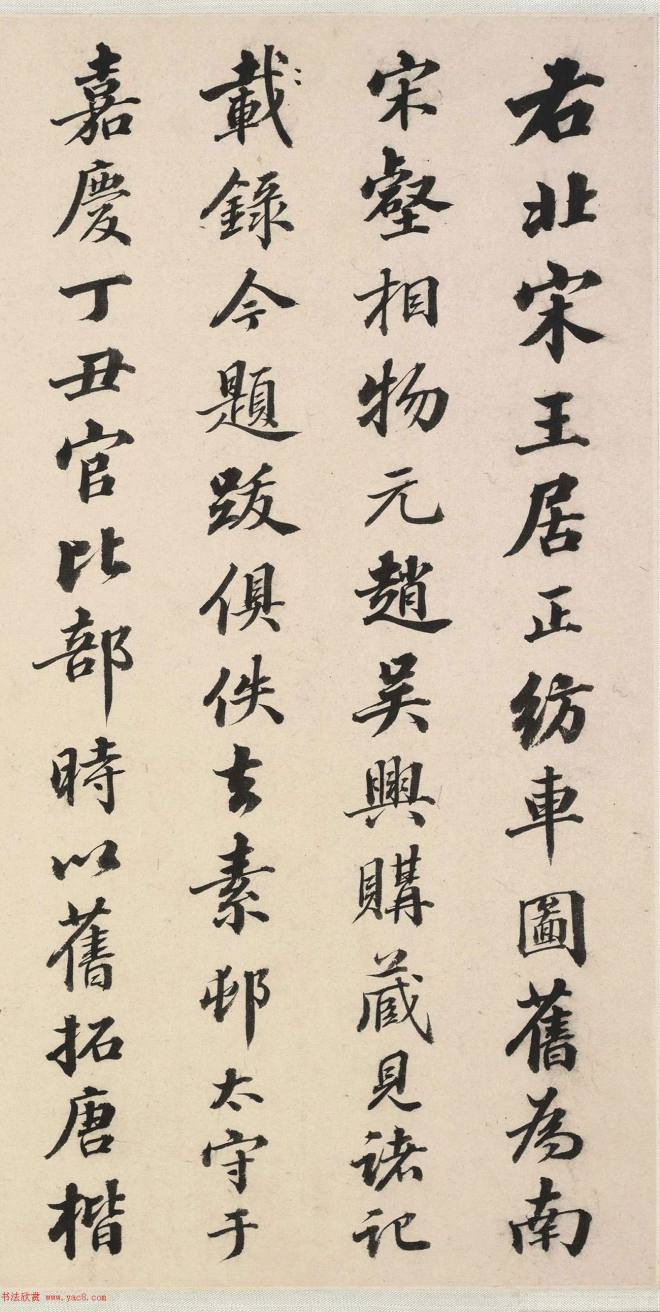 右北宋王居正紡車圖舊為南
宋壑相物元趙吳興購藏見諸記
載錄今題跋俱佚去素邨太守于
嘉慶丁丑官比部時以舊拓唐楷
书法欣赏 www.yac8.com